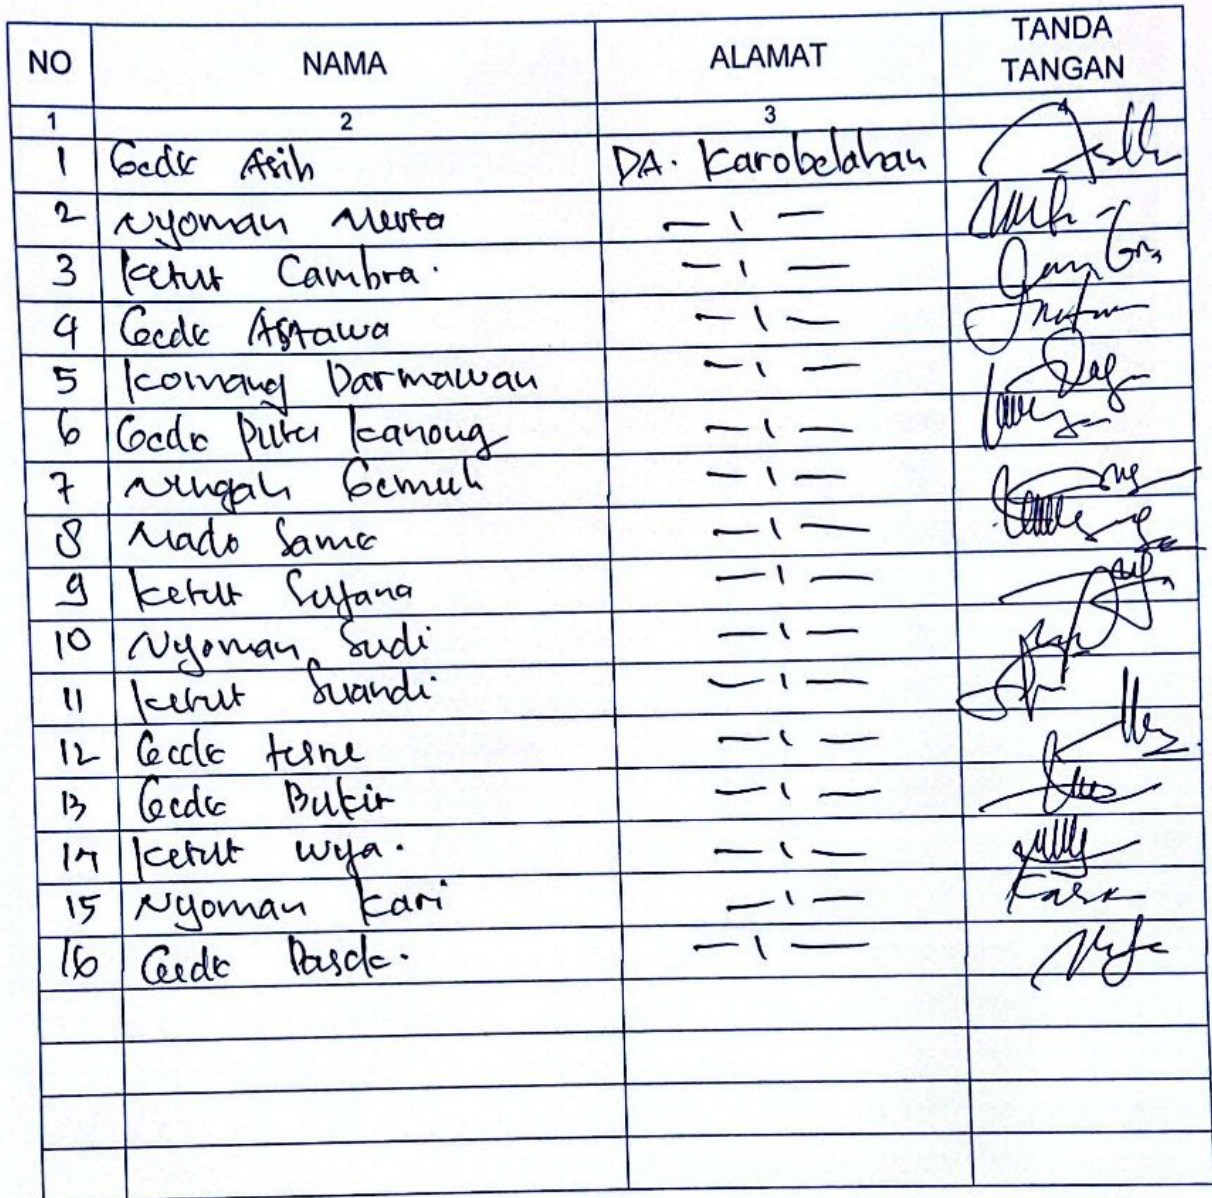 NO NAMA ALAMAT TANDA TANGAN
1 2 3 4
1 Gede Asih DA. Karobelahan
2 Nyoman Merta — ı —
3 Ketut Cambra. — ı —
4 Gede Astawa — ı —
5 Komang Darmawan — ı —
6 Gede Putu Kanong — ı —
7 Nengah Gemuh — ı —
8 Made Same — ı —
9 Ketut Sujana — ı —
10 Nyoman Sudi — ı —
11 Ketut Suandi — ı —
12 Gede — ı —
13 Gede Bukit — ı —
14 Ketut Wija. — ı —
15 Nyoman Kari — ı —
16 Gede Pasde. — ı —